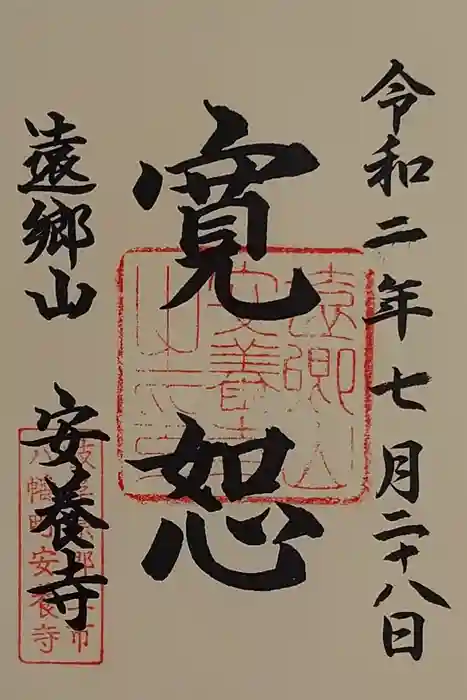 令和二年七月二十八日
寛恕
遠郷山 安養寺
遠郷山
安養寺
八幡町安養寺